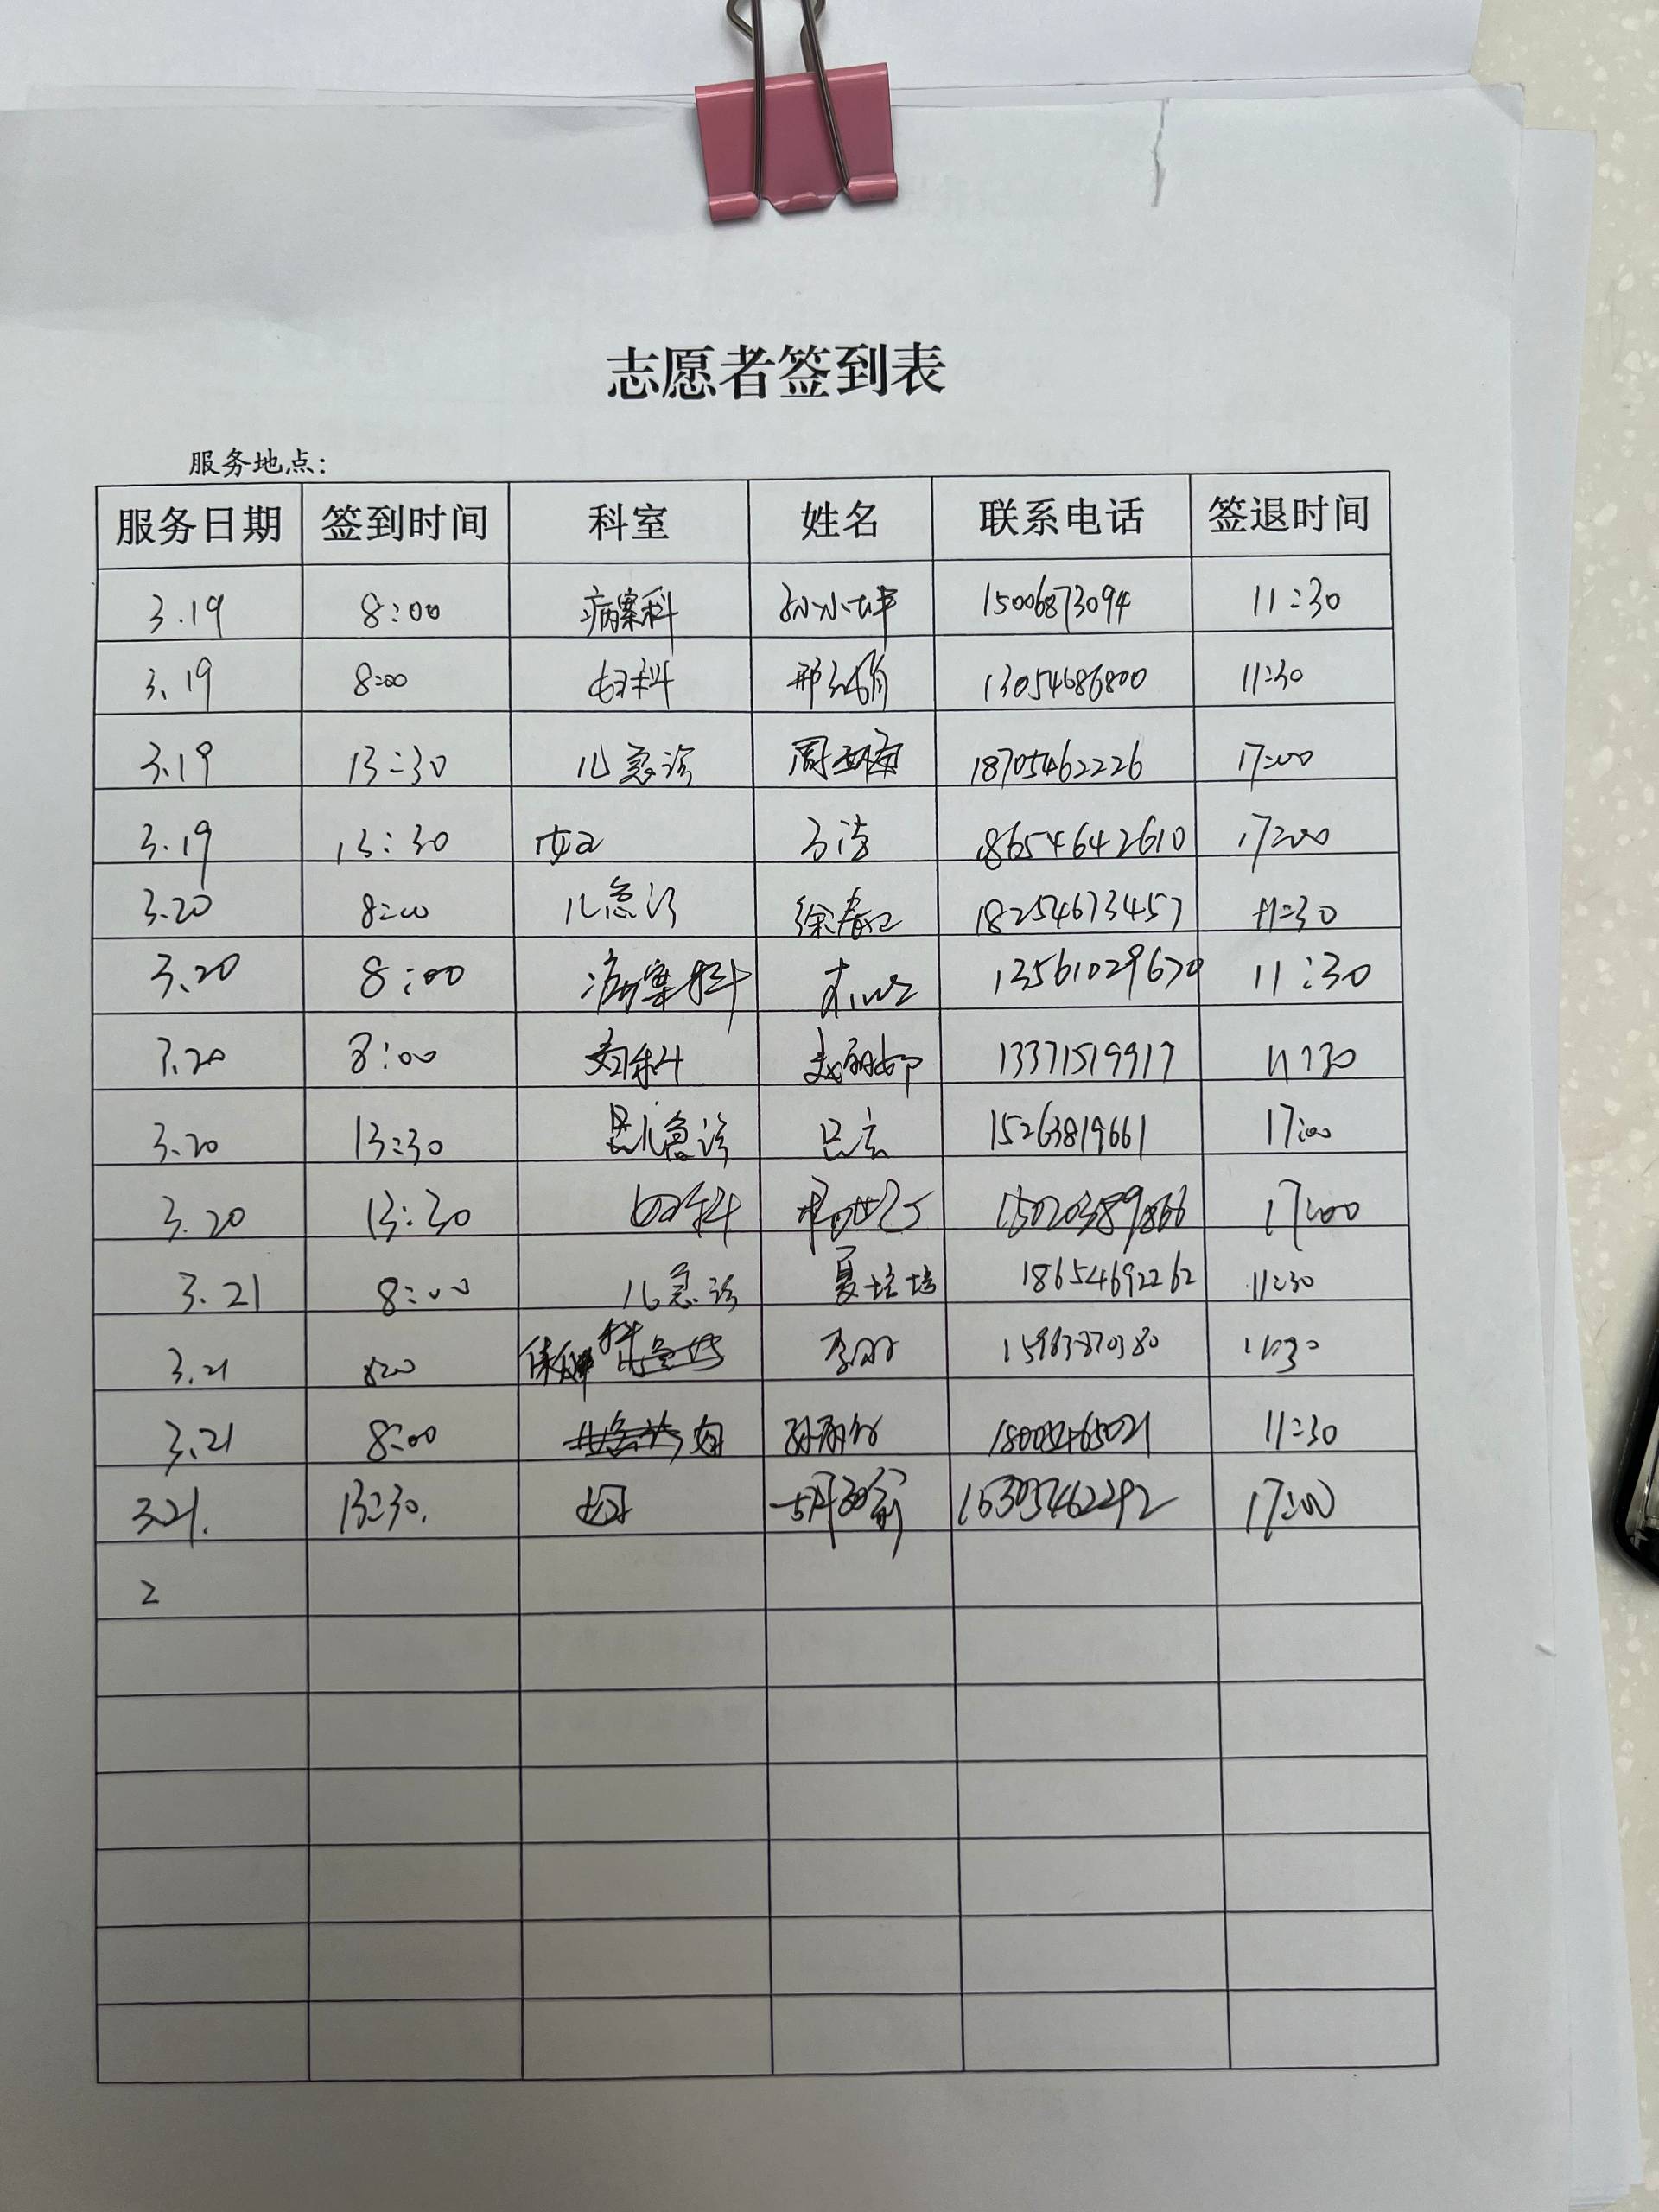 志愿者签到表
服务地点:
服务日期 签到时间 科室 姓名 联系电话 签退时间
3.19 8:00 病案科 孙小坤 15006873094 11:30
3.19 8:00 妇科 邢 13054686800 11:30
3.19 13:30 儿急诊 周 18705462226 17:00
3.19 13:30 18654642610 17:00
3.20 8:00 儿急诊 徐春江 18254673457 11:30
3.20 8:00 病案科 13561029670 11:30
3.20 8:00 妇科 13371519917 11:30
3.20 13:30 儿急诊 吕 15263819661 17:00
3.20 13:30 妇科 17:00
3.21 8:00 儿急诊 夏培培 18654692262 11:30
3.21 8:00 11:30
3.21 8:00 妇 孙丽 11:30
3.21. 13:30. 妇 17:00
2